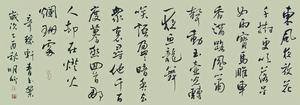 東風夜放花
千樹更吹落星
如雨寶馬雕車
香滿路鳳簫
聲動玉壺光轉
一夜魚龍舞
笑語盈盈暗香去
衆裏尋他千百
度驀然回首那
人却在燈火
闌珊處
辛稼軒青玉案
歲次乙酉秋明